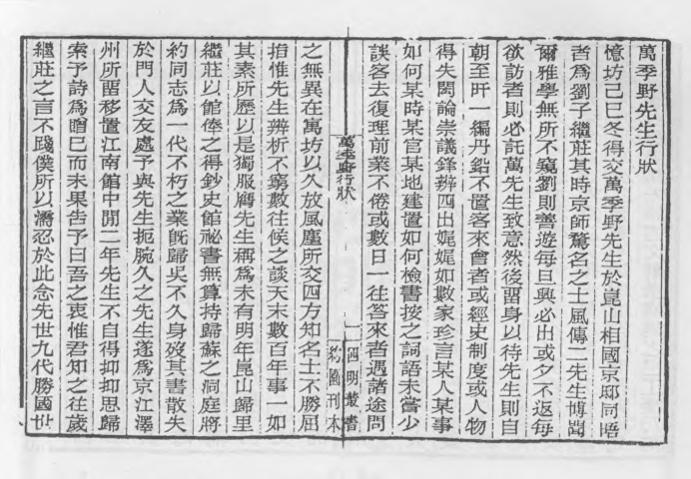 萬季野先生行狀
憶坊己巳冬得交萬季野先生於崑山相國京邸同晤
者爲劉子繼莊其時京師驚名之士風傳二先生博聞
爾雅學無所不窺劉則善遊每旦興必出或夕不返每
欲訪者則必託萬先生致意然後畱身以待先生則自
朝至旰一編丹鉛不置客來會者或經史制度或人物
得失閎論崇議鋒辨四出娓娓如數家珍言某人某事
如何某時某官某地建置如何檢書按之詞語未嘗少
誤客去復理前業不倦或數日一往答來者遇諸途問
萬季野行狀
一
四明叢書
約園刊本
之無異在寓坊以久放風塵所交四方知名士不勝屈
指惟先生辨析不窮數往候之談天末數百年事一如
其素所歷以是獨服膺先生稱爲未有明年崑山歸里
繼莊以館俸之得鈔史館祕書無算持歸蘇之洞庭將
約同志爲一代不朽之業旣歸吳不久身歿其書散失
於門人交友處予與先生扼腕久之先生遂爲京江澤
州所畱移置江南館中閒二年先生不自得抑抑思歸
索予詩爲贈已而未果告予曰吾之衷惟君知之往歲
繼莊之言不踐僕所以濡忍於此念先世九代勝國世